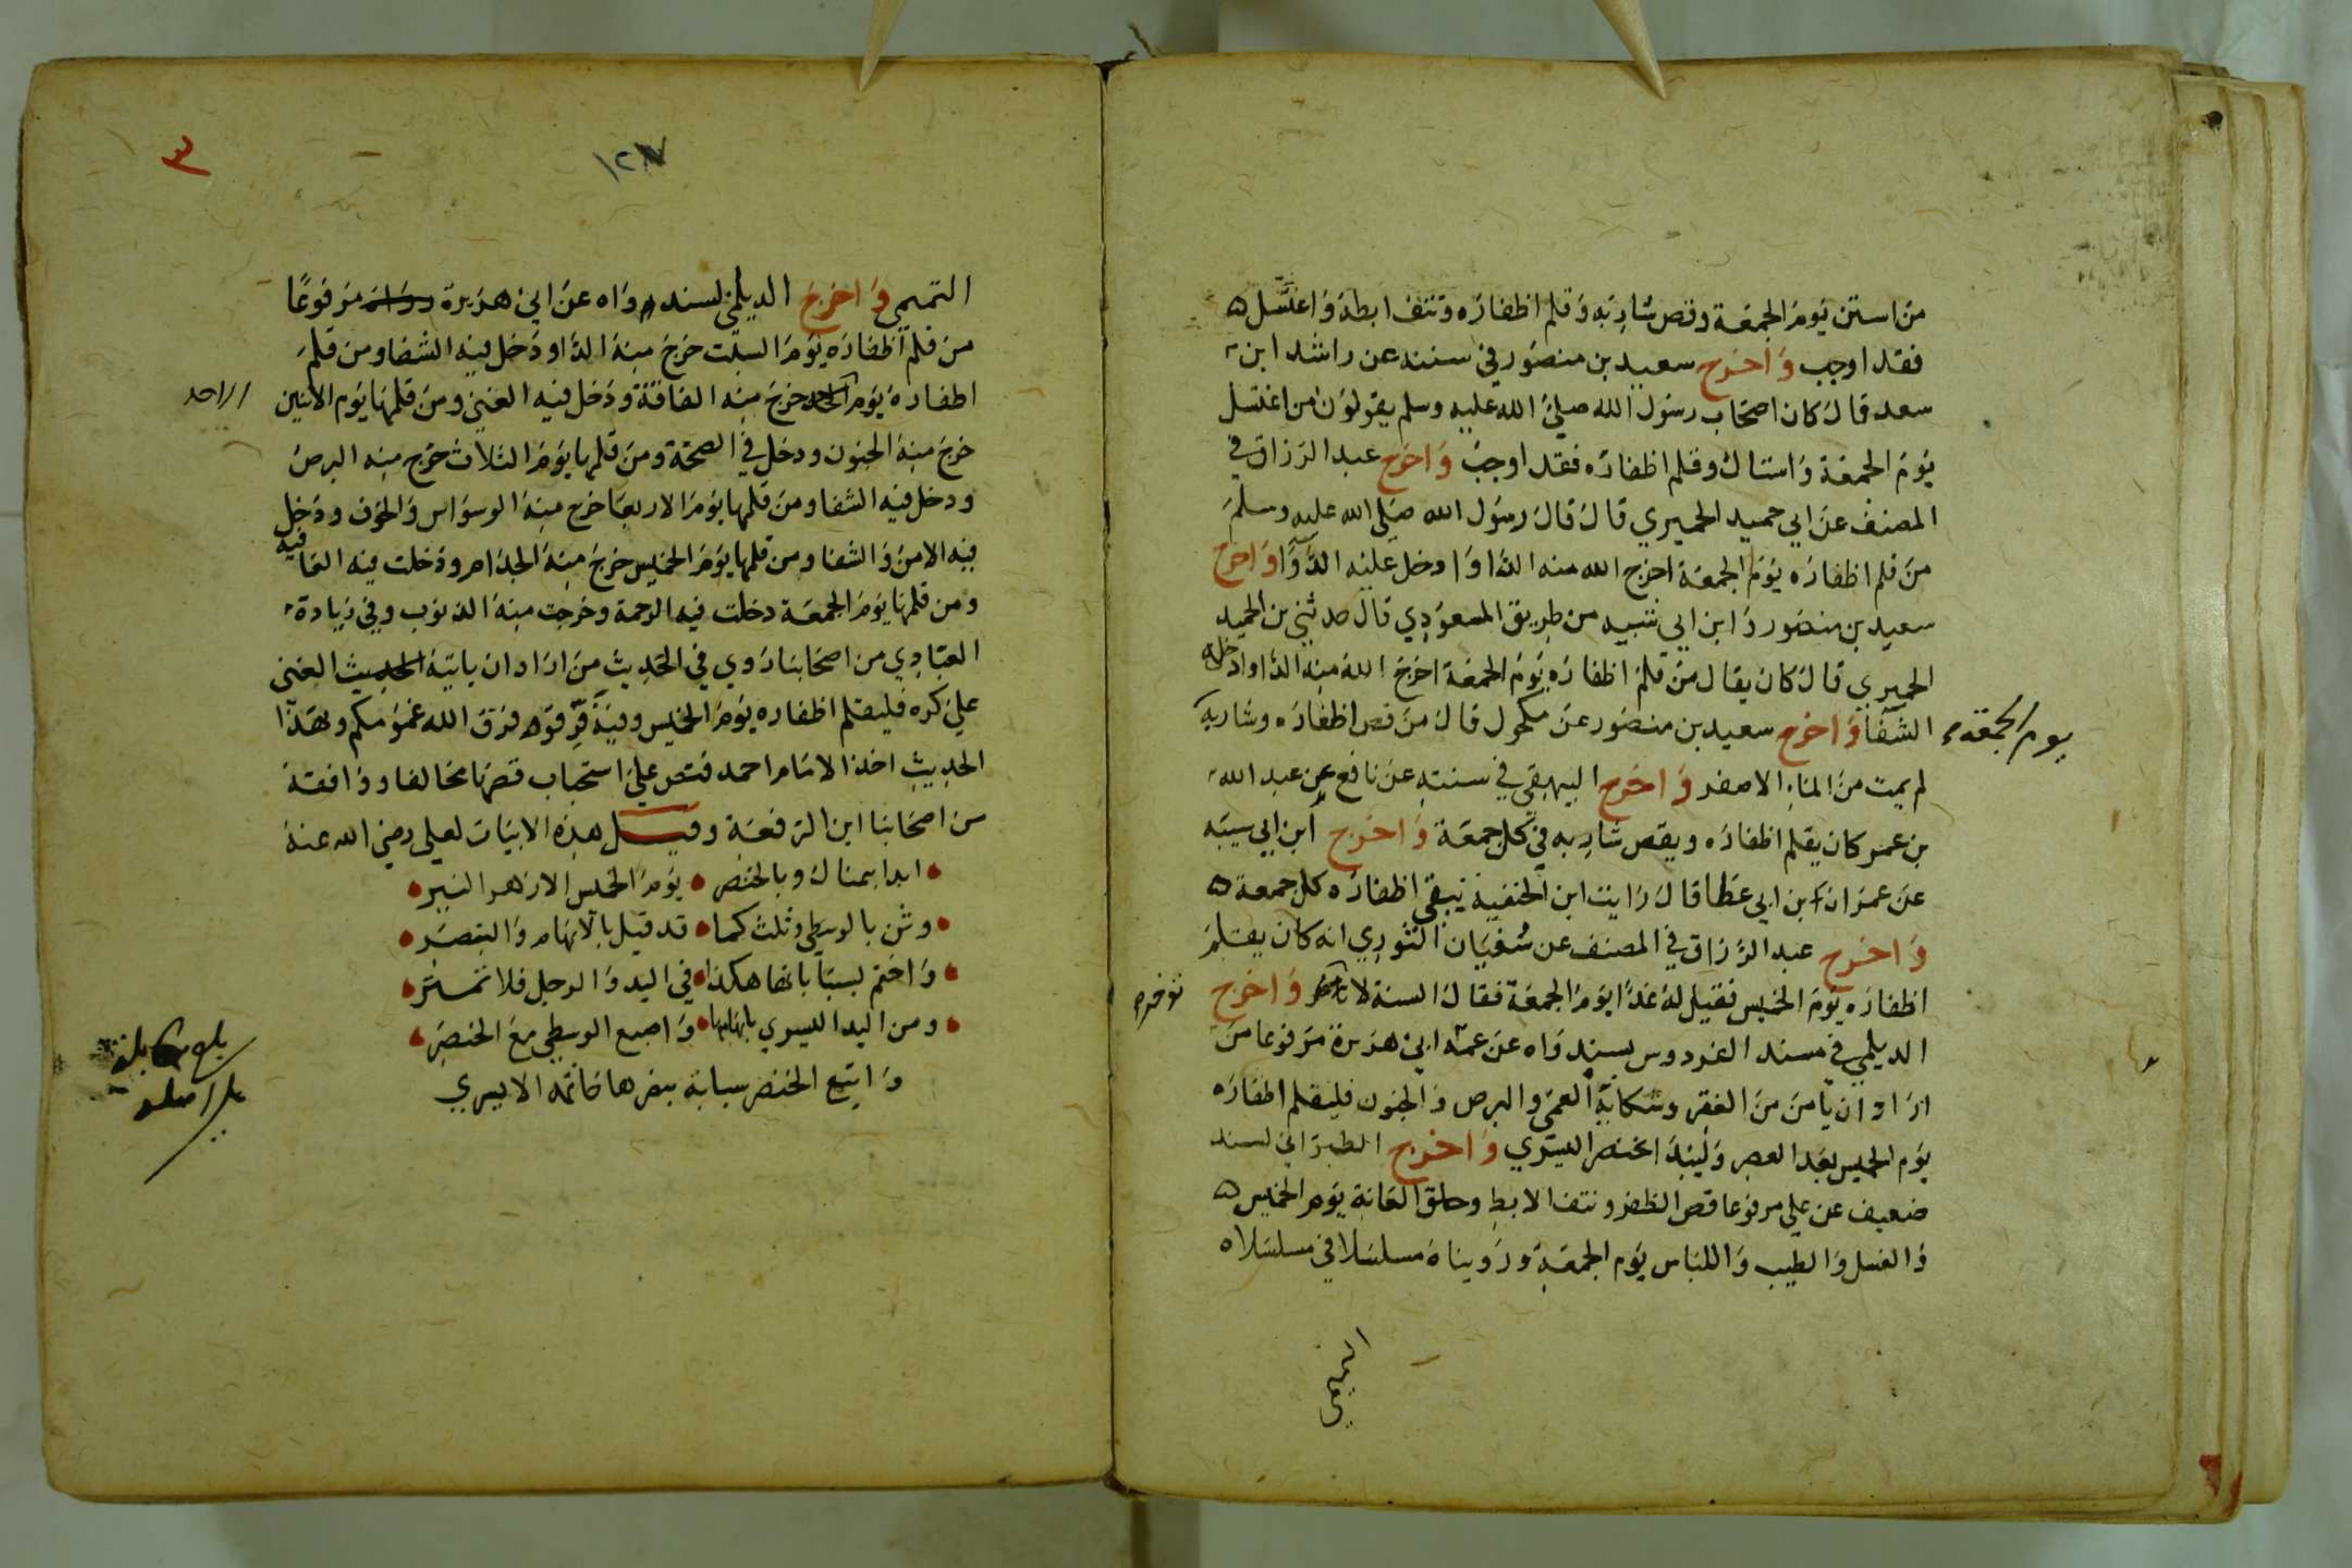 من استن يوم الجمعة وقص شاربه وقلم اظفاره ونتف ابطه واغتسل
فقد اوجب واخرج سعيد بن منصور في سننه عن راشد ابن
سعد قال كان اصحاب رسول الله صلى الله عليه وسلم يقولون من اغتسل
يوم الجمعة واستاك وقلم اظفاره فقد اوجب واخرج عبد الرزاق في
المصنف عن ابي حميد الحميري قال قال رسول الله صلى الله عليه وسلم
من قلم اظفاره يوم الجمعة اخرج الله منه الداوا دخل عليه الدوا واخرج
سعيد بن منصور وابن ابي شيبه من طريق المسعودي قال حدثني بن الحميد
الحميري قال كان يقال من قلم اظفاره يوم الجمعة اخرج الله منه الداوادخله
الشفا واخرج سعيد بن منصور عن مكحول قال من قص اظفاره وشاربه
يوم الجمعة
لم يمت من الماء الاصفر واخرج البيهقي في سننه عن نافع عن عبد الله
بن عمر كان يقلم اظفاره ويقص شاربه في كل جمعة واخرج ابن ابي سيبه
عن عمران ابن ابي عطا قال رايت ابن الحنفية ينقي اظفاره كل جمعة
واخرج عبد الرزاق في المصنف عن سفيان الثوري انه كان يقلم
اظفاره يوم الخميس فقيل له غدا يوم الجمعة فقال السنة لا واخرج
توخر
الديلمي في مسند الفردوس بسند واه عن عمه ابي هريرة مرفوعا من
اراد ان يامن من الفقر وشكاية العمى والبرص والجنون فليقلم اظفاره
يوم الخميس بعد العصر وليبدا بخنصر اليسري واخرج الطبراني لسند
ضعيف عن علي مرفوعا قص الظفر ونتف الابط وحلق العانة يوم الخميس
والغسل والطيب واللباس يوم الجمعة ورويناه مسلسلا في مسلسلاه
التميمي
٣
١٢٧
التميمي واخرج الديلمي لسند واه عن ابي هريرة مرفوعا
من قلم اظفاره يوم السبت خرج منه الداودخل فيه الشفا ومن قلم
اظفاره يوم الاحد خرج منه الفاقة ودخل فيه الغني ومن قلمها يوم الاثنين
الاحد
خرج منه الجنون ودخل في الصحة ومن قلمها يوم الثلاث خرج منه البرص
ودخل فيه الشفا ومن قلمها يوم الاربعا خرج منه الوسواس والخوف ودخل
فيه الامن والشفا ومن قلمها يوم الخميس خرج منه الجذام ودخلت فيه العافيه
ومن قلمها يوم الجمعة دخلت فيه الرحمة وخرجت منه الذنوب وفي زيادة
العبادي من اصحابنا روي في الحديث من اراد ان ياتيه الغني
علي كره فليقلم اظفاره يوم الخميس وفيه فرقوها فرق الله غمومكم وبهذا
الحديث اخذ الامام احمد فنص علي استحباب قصها مخالفا ووافقه
من اصحابنا ابن الرفعة وقيل هذه الابيات لعلي رضي الله عنه
ابدا بيمناك وبالخنصر يوم الخميس الازهر النير
وثن بالوسطي وثلث كما قد قيل بالابهام والبنصر
واختم بسبابتها هكذا في اليد والرجل فلا تمتر
ومن اليد اليسري بابهامها واصبع الوسطي مع الخنصر
واتبع الخنصر سبابة بنصرها خاتمه الايسري
بلغ مقابلة
علي اصله